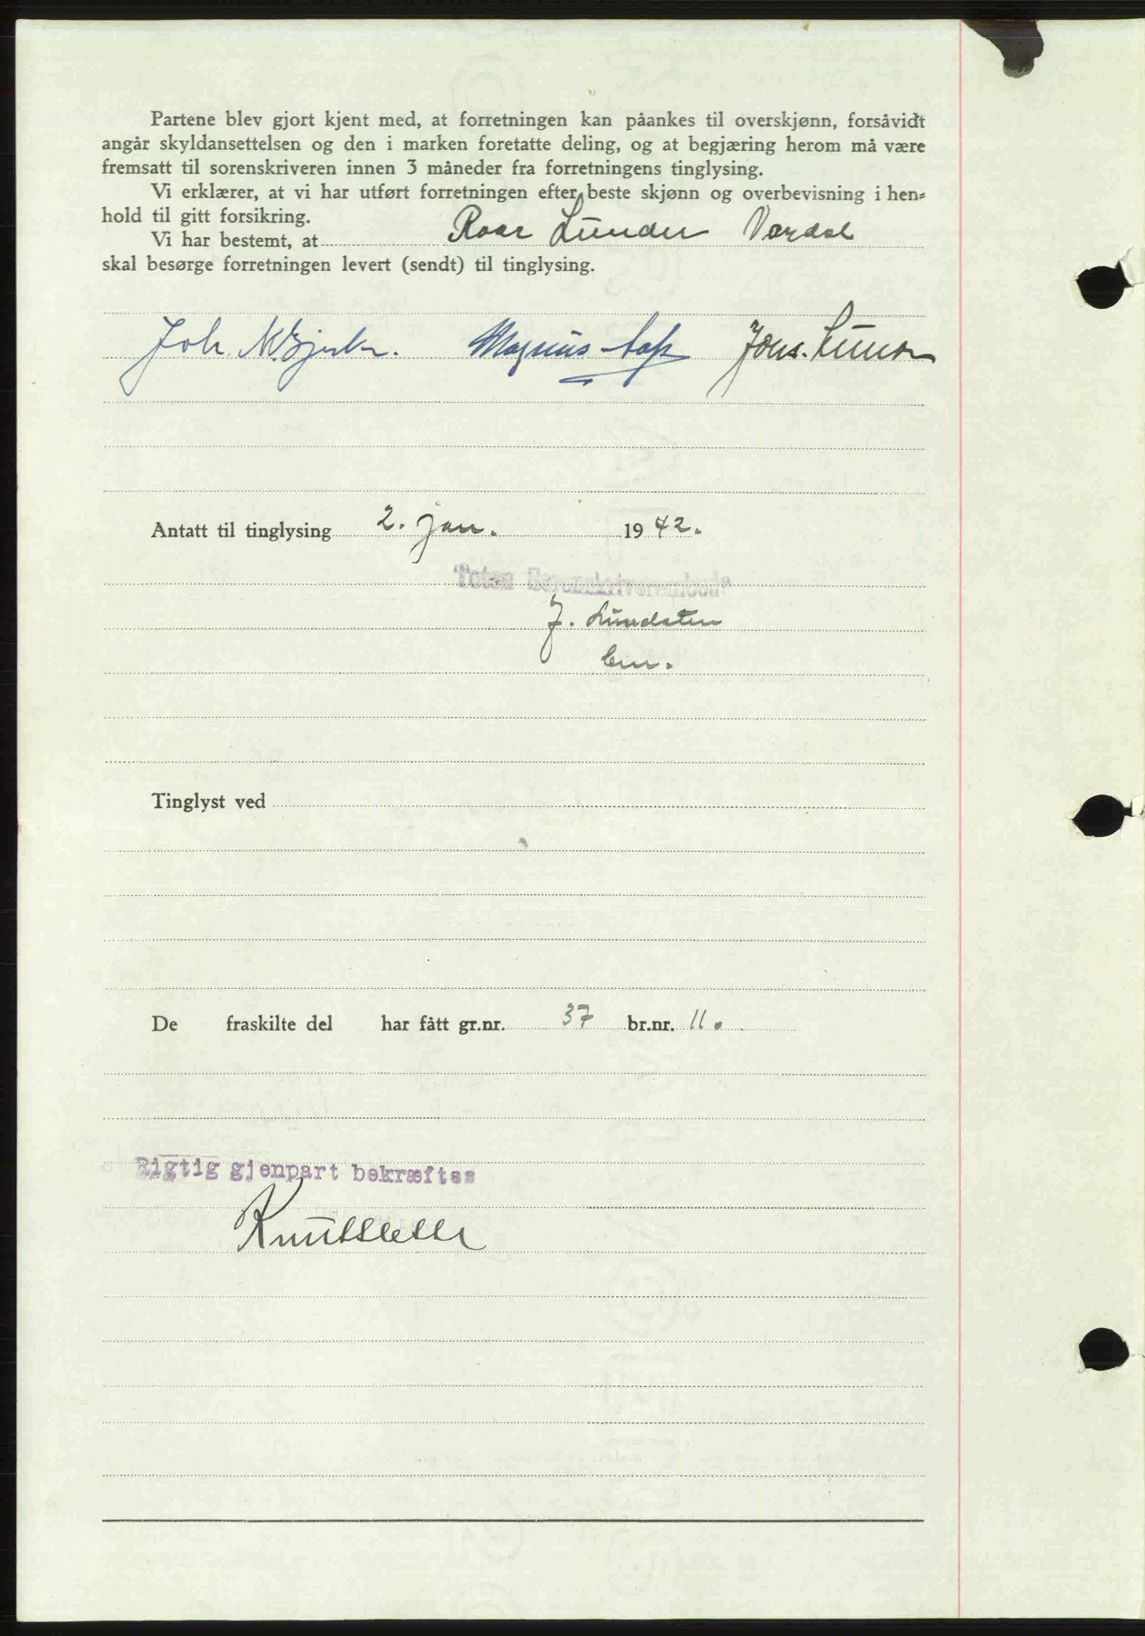 Partene blev gjort kjent med, at forretningen kan påankes til overskjønn, forsåvidt
angår skyldansettelsen og den i marken foretatte deling, og at begjæring herom må være
fremsatt til sorenskriveren innen 3 måneder fra forretningens tinglysing.
Vi erklærer, at vi har utført forretningen efter beste skjønn og overbevisning i hen=
hold til gitt forsikring.
Vi har bestemt, at Roar Lunder Vardal
skal besørge forretningen levert (sendt) til tinglysing.
Joh. Magnus Johs.
Antatt til tinglysing 2. jan. 1942.
Toten Sorenskriverembede
J. Lundsten
Tinglyst ved
De fraskilte del har fått gr.nr. 37 br.nr. 11.
Rigtig gjenpart bekræftes